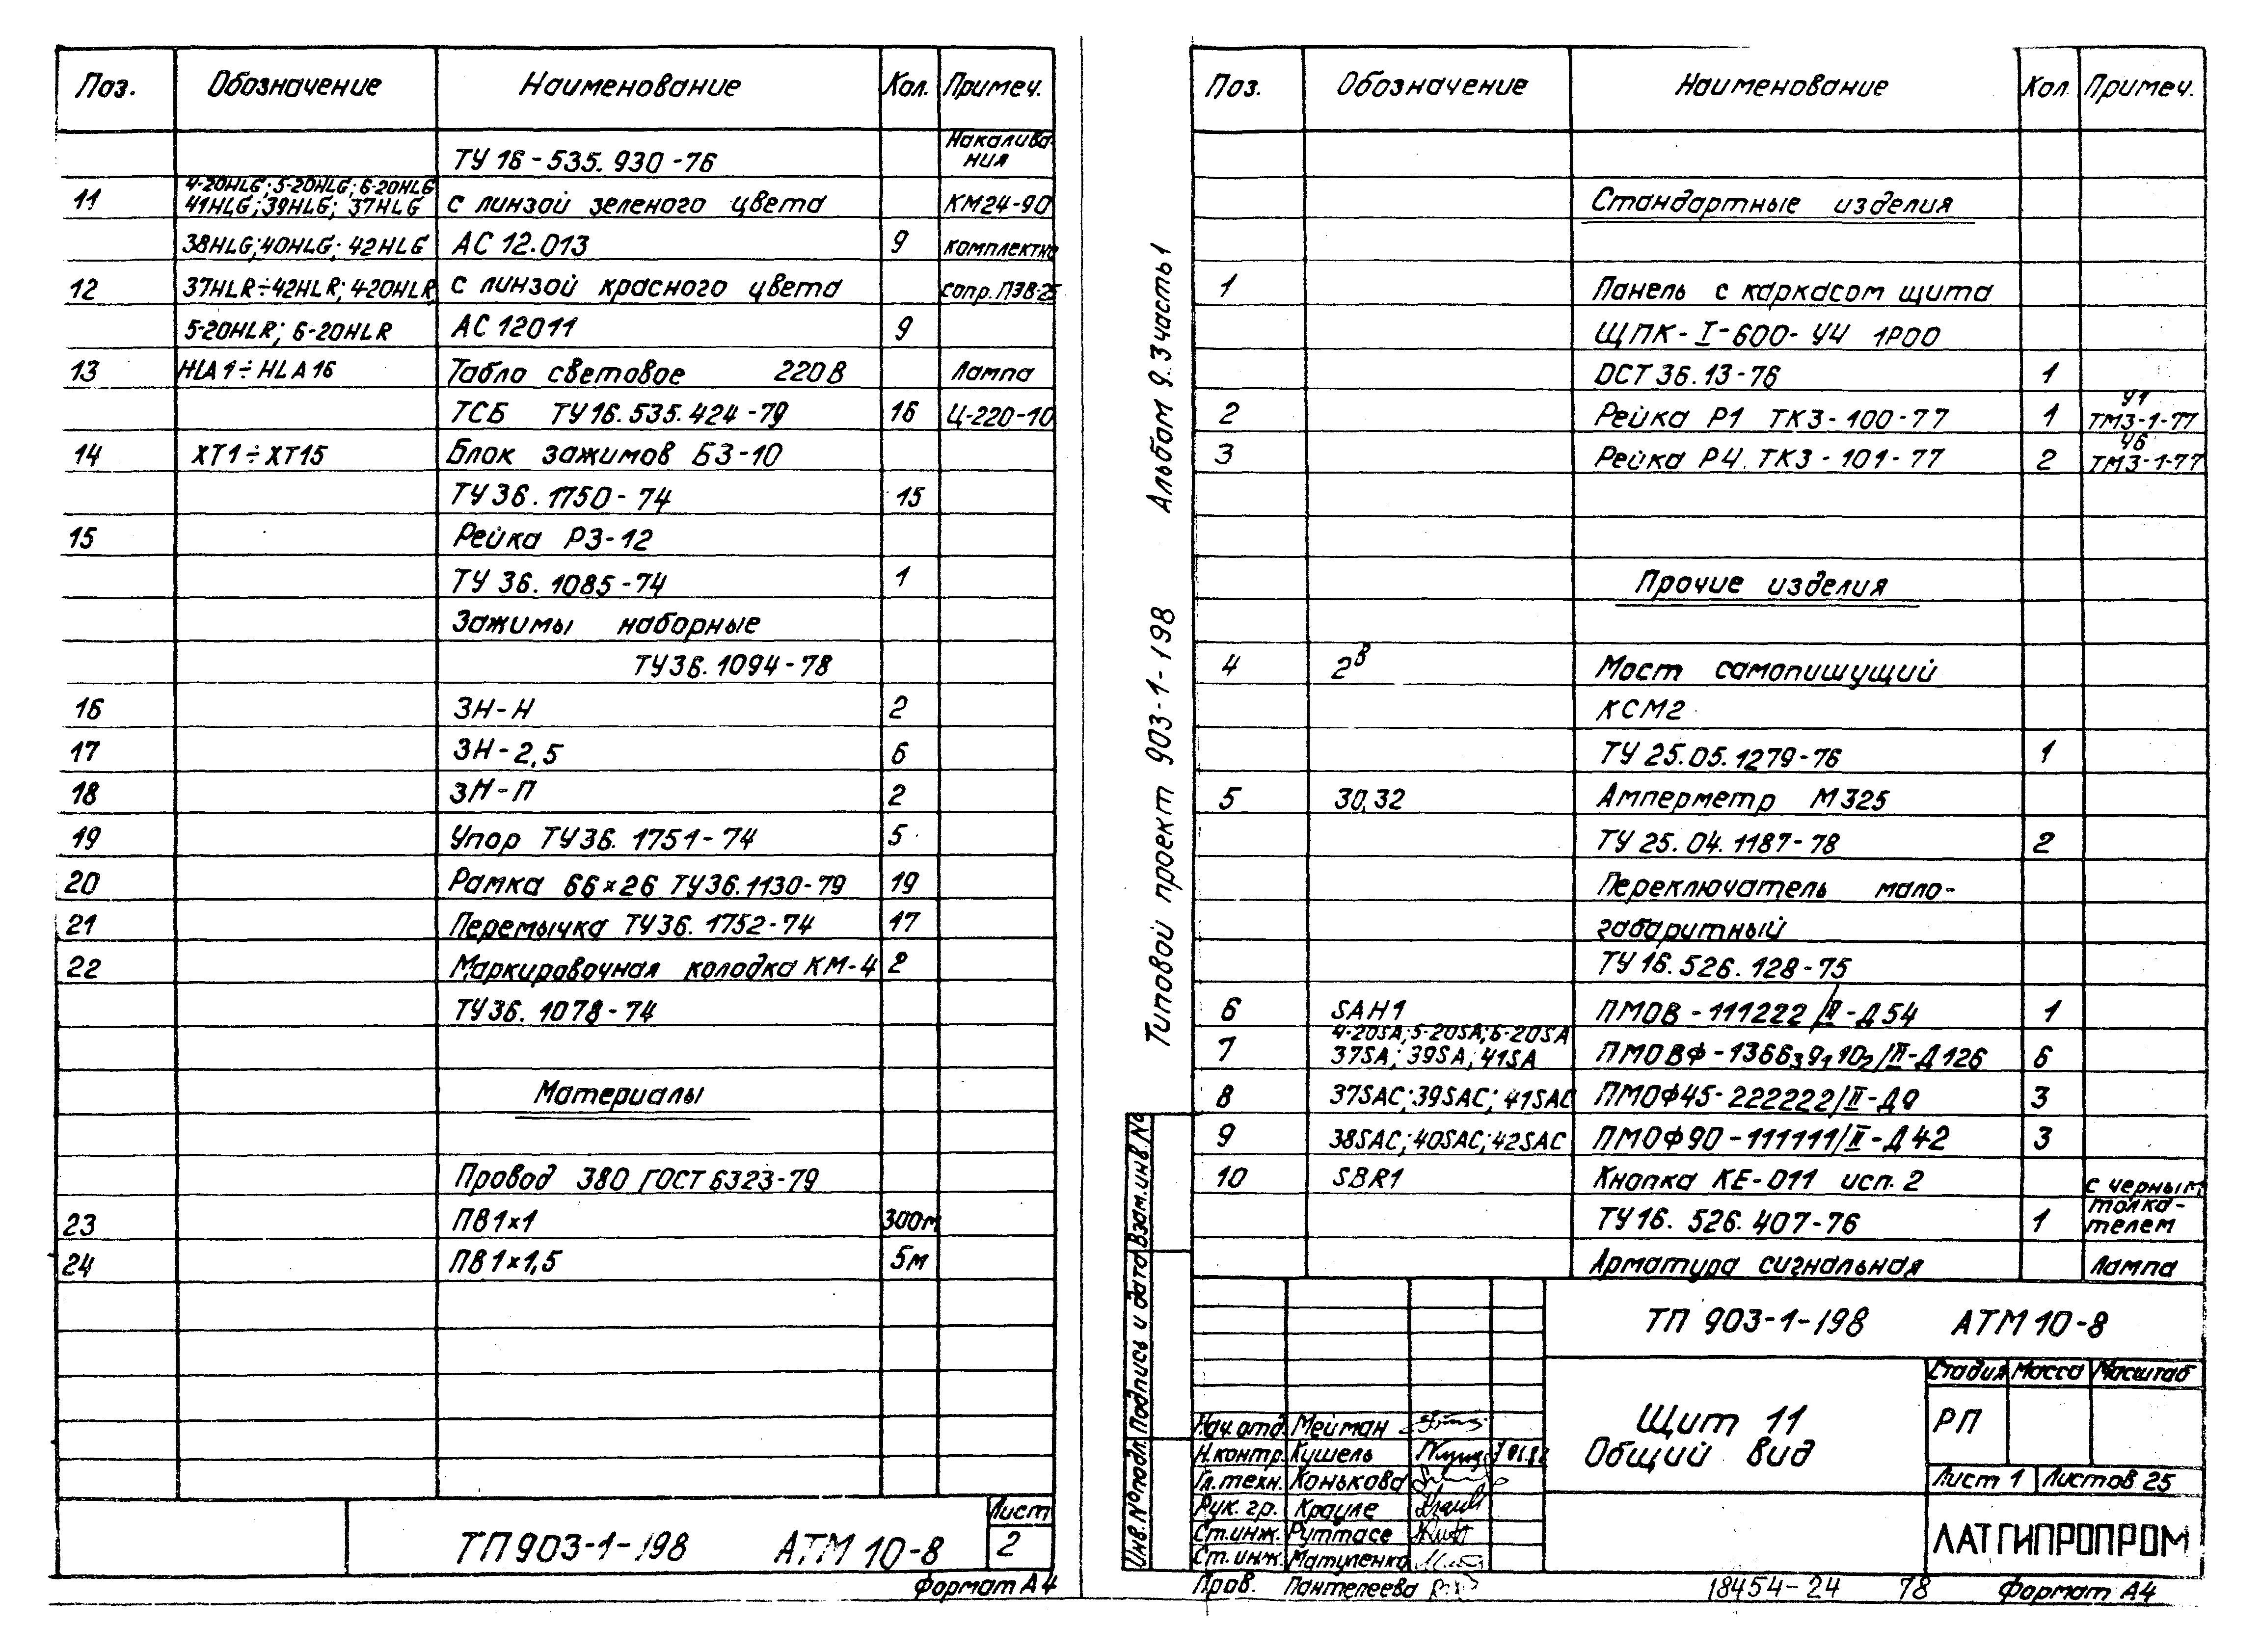 Поз. Обозначение Наименование Кол. Примеч.
ТУ 16-535.930-76 Накалива-
ния
4-20HLG; 5-20HLG; 6-20HLG
11 41HLG; 39HLG; 37HLG с линзой зеленого цвета КМ24-90
38HLG; 40HLG; 42HLG АС 12.013 9 комплектно
12 37HLR÷42HLR; 4-20HLR с линзой красного цвета сопр. ПЭВ-25
5-20HLR; 6-20HLR АС 12011 9
13 HLA1÷HLA16 Табло световое 220В Лампа
ТСБ ТУ16.535.424-79 16 Ц-220-10
14 ХТ1÷ХТ15 Блок зажимов БЗ-10
ТУ 36.1750-74 15
15 Рейка РЗ-12
ТУ 36.1085-74 1
Зажимы наборные
ТУ36.1094-78
16 ЗН-Н 2
17 ЗН-2,5 6
18 ЗН-П 2
19 Упор ТУ36.1751-74 5
20 Рамка 66×26 ТУ36.1130-79 19
21 Перемычка ТУ36.1752-74 17
22 Маркировочная колодка КМ-4 2
ТУ36.1078-74
Материалы
Провод 380 ГОСТ 6323-79
23 ПВ1×1 300м
24 ПВ1×1,5 5м
ТП 903-1-198 АТМ 10-8
Лист
2
Формат А4
Типовой проект 903-1-198 Альбом 9.3 часть 1
Поз. Обозначение Наименование Кол. Примеч.
Стандартные изделия
1 Панель с каркасом щита
ЩПК-I-600-У4 1Р00
ОСТ 36.13-76 1
2 Рейка Р1 ТК3-100-77 1 У1
ТМ3-1-77
3 Рейка Р4 ТК3-101-77 2 У6
ТМ3-1-77
Прочие изделия
4 2в Мост самопишущий
КСМ2
ТУ 25.05.1279-76 1
5 30,32 Амперметр М325
ТУ 25.04.1187-78 2
Переключатель мало-
габаритный
ТУ 16.526.128-75
6 SAH1 ПМОВ-111222/II-Д54 1
4-20SA; 5-20SA; 6-20SA
7 37SA; 39SA; 41SA ПМОВФ-1366₃9₁10₂/II-Д126 6
8 37SAC; 39SAC; 41SAC ПМОФ45-222222/II-Д9 3
9 38SAC; 40SAC; 42SAC ПМОФ90-111111/II-Д42 3
10 SBR1 Кнопка КЕ-011 исп. 2 с черным
ТУ16.526.407-76 1 толка-
телем
Арматура сигнальная Лампа
Инв.№подл. Подпись и дата Взам.инв.№
ТП 903-1-198 АТМ 10-8
Щит 11
Общий вид
Стадия Масса Масштаб
РП
Лист 1 Листов 25
ЛАТГИПРОПРОМ
Нач.отд. Мейман
Н.контр. Кушель
Гл.техн. Конькова
Рук. гр. Крауле
Ст.инж. Руттасе
Ст.инж. Матуленко
Пров. Пантелеева
18454-24 78 Формат А4